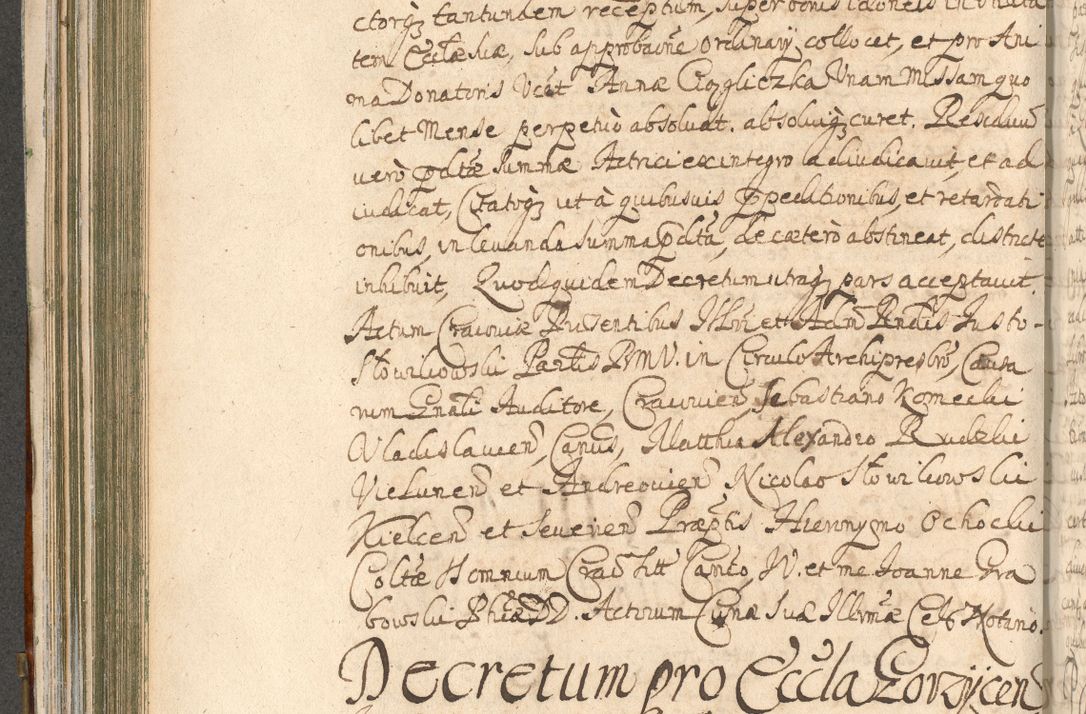 ctorq₃ tantundem receptum, super bonis idoneis
tem Ecclæ suæ, sub approbaõne Ordinarij collocet, et pro Ani
ma Donatoris Vest Annæ Unam Missam quo
libet Mense perpetuò absoluat. absoluiq₃ curet. Residuũ
verò pdtæ summæ Actrici ex integro adiudicauit, et ad
iudicat, Citatoq₃ ut à quibusuis ppeditionibus, et retardati
onibus, in leuanda summa pdta, de cætero abstineat, districte
inhibuit, Quod quidem Decretum utraq₃ pars acceptauit.
Actum Cracoviæ Præsentibus Illri et Adm Rndis Justo
Słowikowski B M V. in Circulo Archipresbro, Causa
rum Gnali Auditore, Cracovien, Sebastiano Komecki
Vladislavien, Canus, Matthia Alexandro Rudzki
Vielunen et Andreovien Nicolao Słowikowski
Kielcen et Severien Præptis Hieronymo Ochocki
Coltæ Omnium Crac Canco, N. et me Joanne Gra
bowski Actorum Curiæ Suæ Illrmæ Cels Notario.
Decretum pro Eccla Gorzÿcen